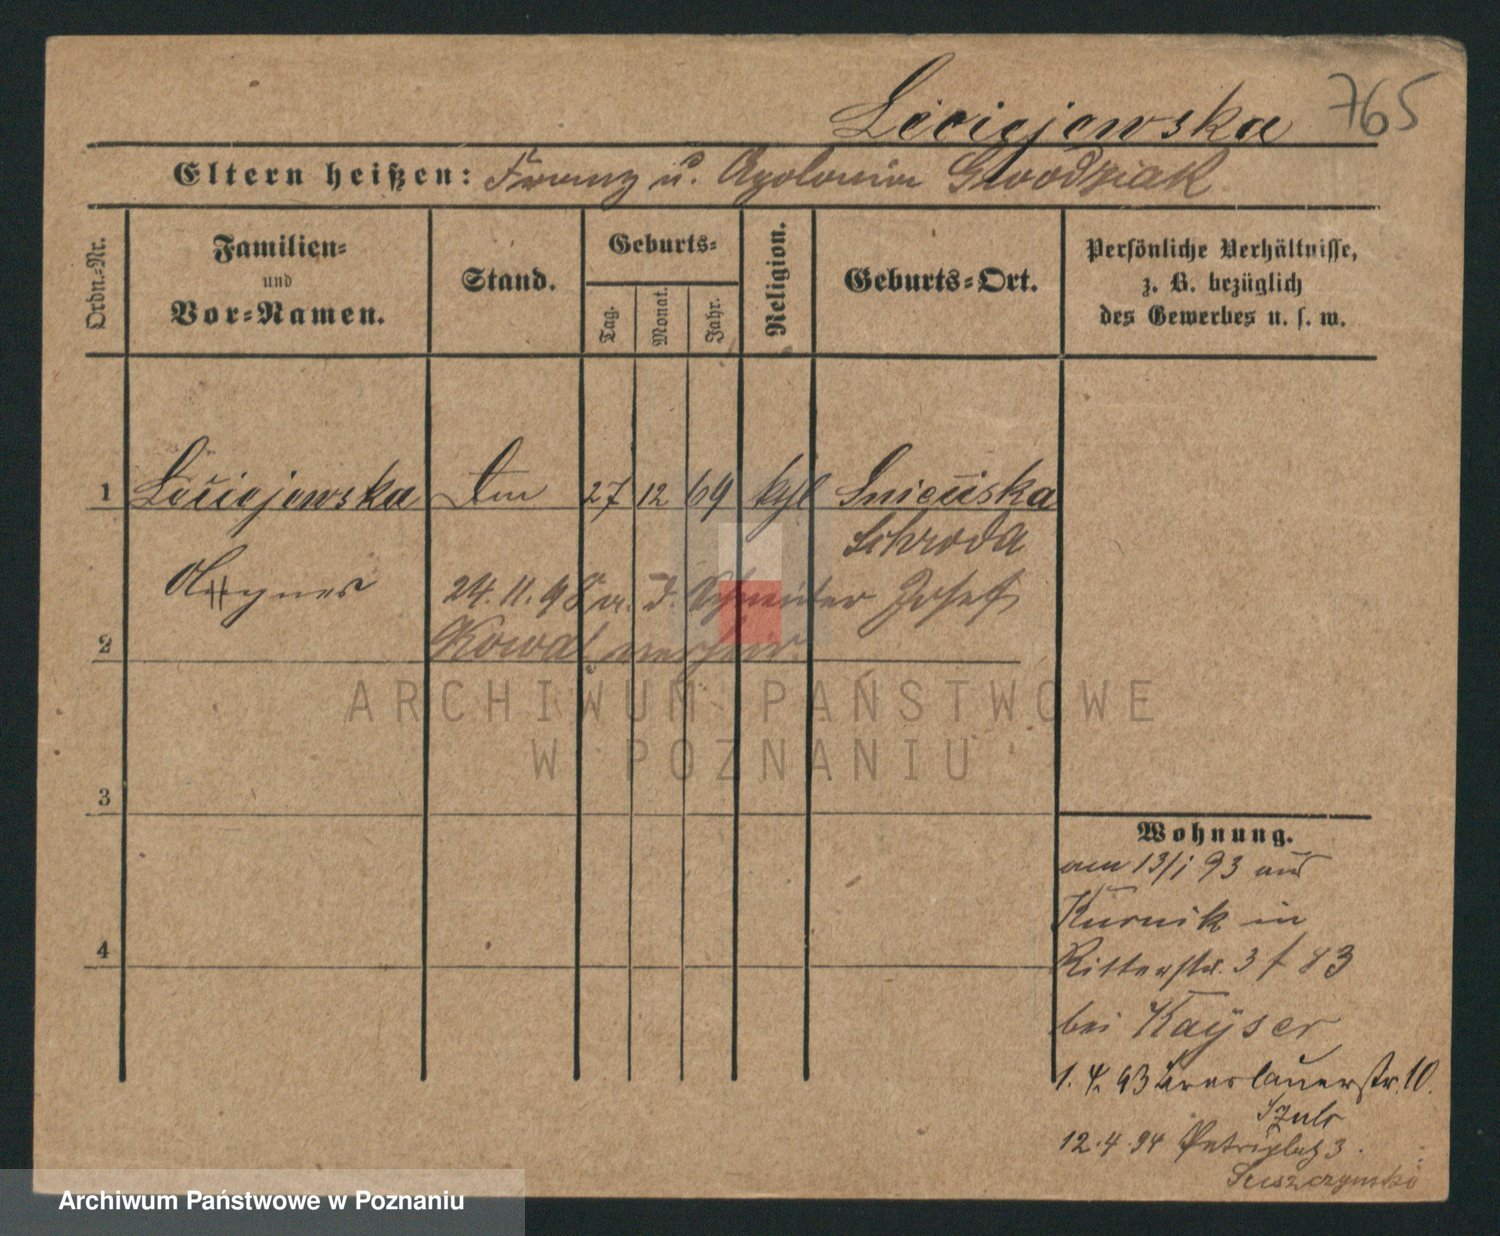 Łóciejewska 765
Eltern heißen: Franz u. Apolonia Gwoodziak
Ordn.-Nr.
Familien-
und
Vor-Namen.
Stand.
Geburts-
Tag.
Monat.
Jahr.
Religion.
Geburts-Ort.
Persönliche Verhältnisse,
z. B. bezüglich
des Gewerbes u. s. w.
1 27 12 69 kth
Schroda
Agnes
24.11.98 m. d. Schneider Josef
2 Kowal verheir.
ARCHIWUM PAŃSTWOWE
W POZNANIU
3
4
Wohnung.
am 13/1 93 aus
Kurnik in
Ritterstr. 3
bei Kayser
1. 4. 93 Breslauerstr. 10.
Szulc
12.4.94 Petriplatz 3.
Archiwum Państwowe w Poznaniu